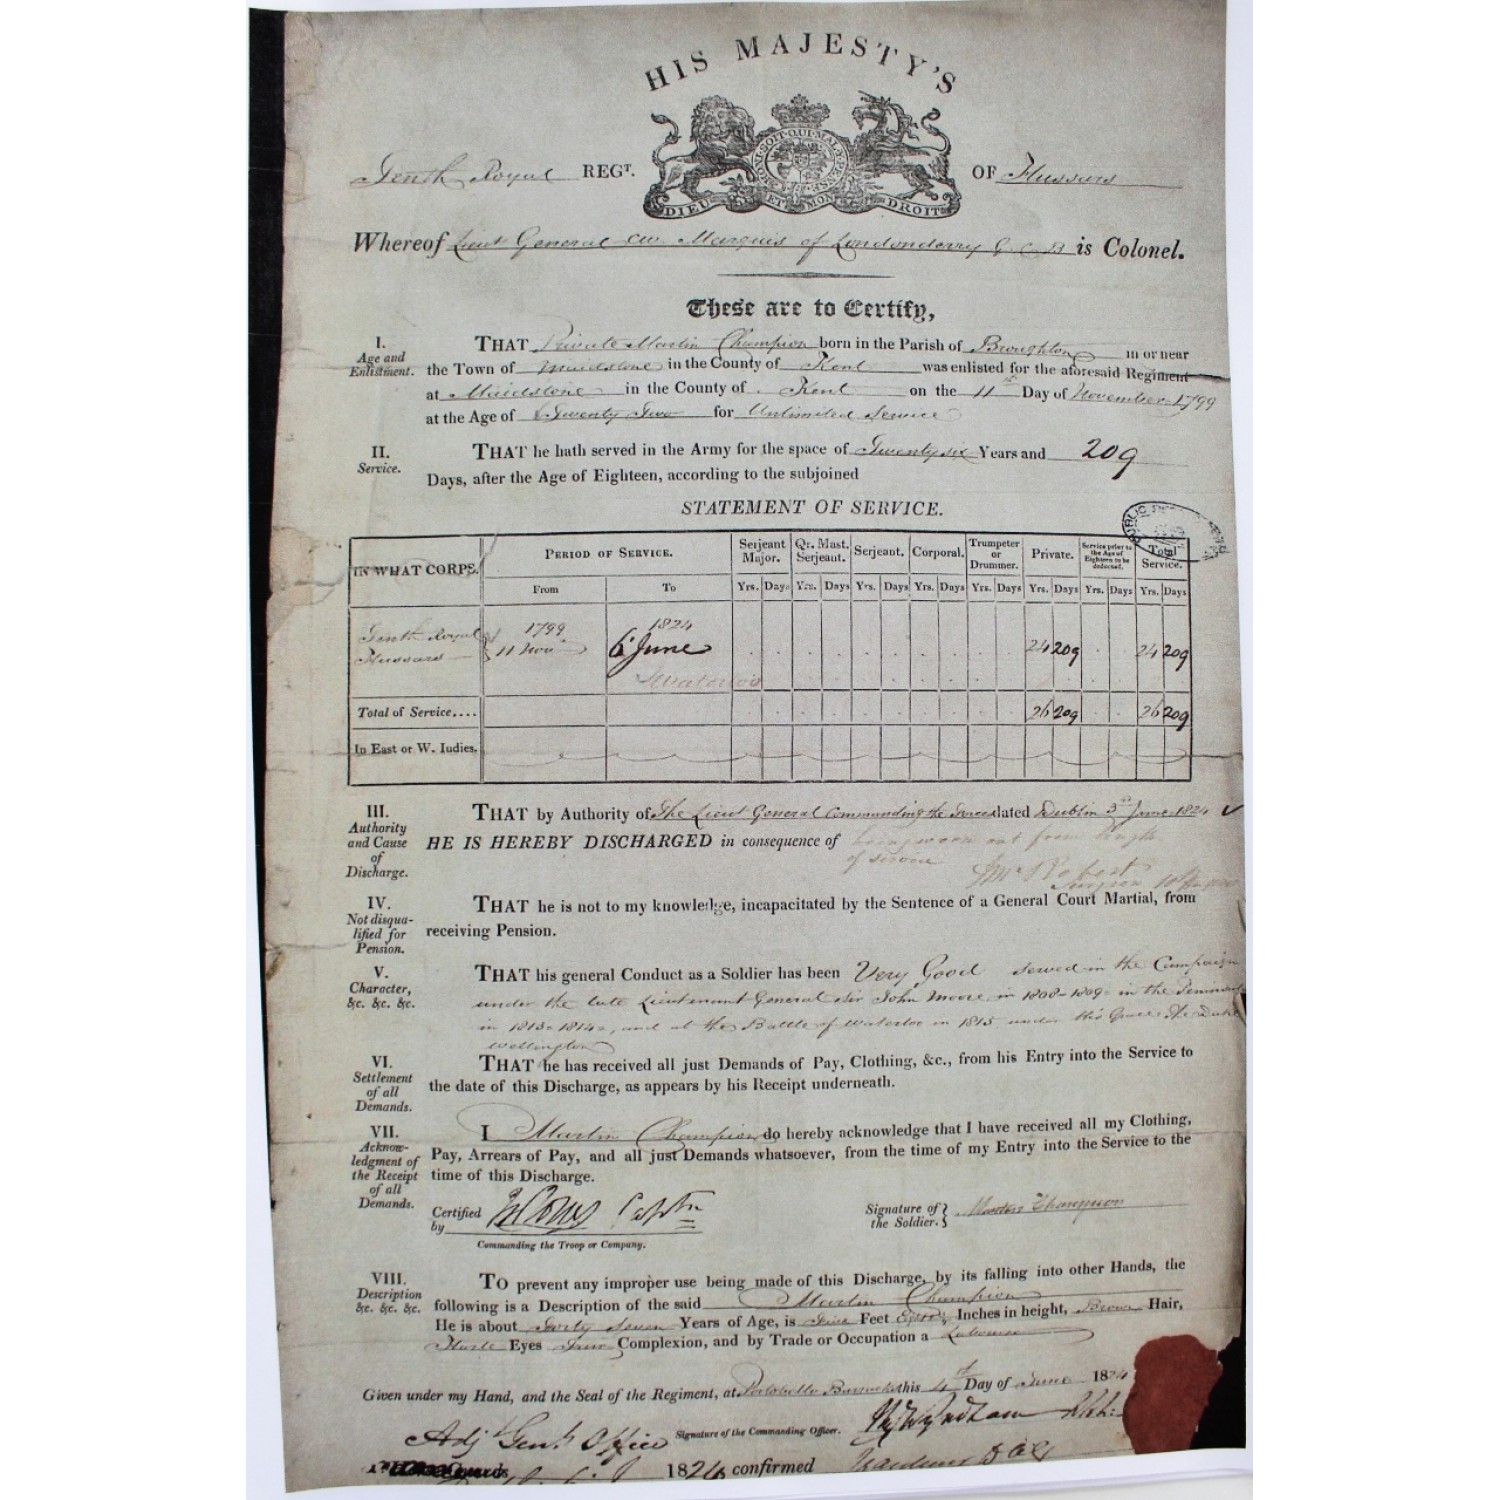 HIS MAJESTY'S
HONI SOIT QUI MAL Y PENSE
DIEU ET MON DROIT
Tenth Royal REGT. OF Hussars
Whereof Lieut General Cw. Marquis of Londonderry G.C.B is Colonel.
These are to Certify,
I.
Age and
Enlistment.
THAT Private Martin Champion born in the Parish of Broughton in or near
the Town of Maidstone in the County of Kent was enlisted for the aforesaid Regiment
at Maidstone in the County of Kent on the 11th Day of November 1799
at the Age of Twenty Two for Unlimited Service
II.
Service.
THAT he hath served in the Army for the space of Twenty six Years and 209
Days, after the Age of Eighteen, according to the subjoined
STATEMENT OF SERVICE.
IN WHAT CORPS. PERIOD OF SERVICE. Serjeant Major. Qr. Mast. Serjeant. Serjeant. Corporal. Trumpeter or Drummer. Private. Service prior to the Age of Eighteen to be deducted. Total Service.
From To Yrs. Days Yrs. Days Yrs. Days Yrs. Days Yrs. Days Yrs. Days Yrs. Days Yrs. Days
Tenth Royal 1799 1824
Hussars 11 Nov 6 June 24 209 24 209
Waterloo
Total of Service.... 26 209 26 209
In East or W. Indies.
III.
Authority
and Cause
of
Discharge.
THAT by Authority of The Lieut General Commanding the Forces dated Dublin 3rd June 1824
HE IS HEREBY DISCHARGED in consequence of being worn out from length
of service
Surgeon
IV.
Not disqua-
lified for
Pension.
THAT he is not to my knowledge, incapacitated by the Sentence of a General Court Martial, from
receiving Pension.
V.
Character,
&c. &c. &c.
THAT his general Conduct as a Soldier has been Very Good served in the Campaign
under the late Lieutenant General Sir John Moore in 1808-1809 in the Peninsula
in 1813-1814, and at the Battle of Waterloo in 1815 under His Grace The Duke
Wellington
VI.
Settlement
of all
Demands.
THAT he has received all just Demands of Pay, Clothing, &c., from his Entry into the Service to
the date of this Discharge, as appears by his Receipt underneath.
VII.
Acknow-
ledgment of
the Receipt
of all
Demands.
I Martin Champion do hereby acknowledge that I have received all my Clothing,
Pay, Arrears of Pay, and all just Demands whatsoever, from the time of my Entry into the Service to the
time of this Discharge.
Certified
by Captn
Commanding the Troop or Company.
Signature of
the Soldier. Martin Champion
VIII.
Description
&c. &c. &c.
TO prevent any improper use being made of this Discharge, by its falling into other Hands, the
following is a Description of the said Martin Champion
He is about Forty Seven Years of Age, is Five Feet Eight Inches in height, Brown Hair,
Hazle Eyes Fair Complexion, and by Trade or Occupation a Labourer
Given under my Hand, and the Seal of the Regiment, at Portobello Barracks this 4th Day of June 1824
Signature of the Commanding Officer.
Adjt Genl. Office
Guards 1824 confirmed